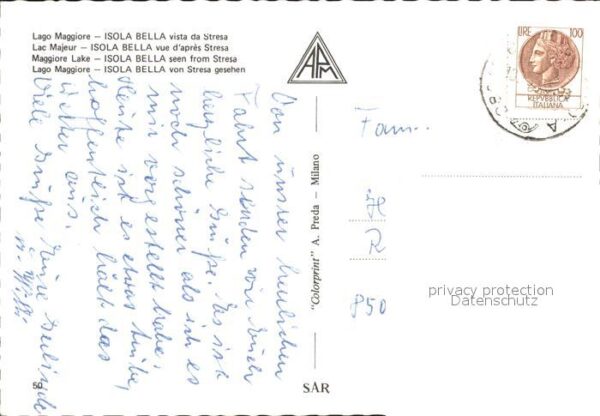 Lago Maggiore – ISOLA BELLA vista da Stresa
Lac Majeur – ISOLA BELLA vue d'après Stresa
Maggiore Lake – ISOLA BELLA seen from Stresa
Lago Maggiore – ISOLA BELLA von Stresa gesehen
APM
LIRE 100
REPVBBLICA
ITALIANA
Von unserer herrlichen
Fahrt senden wir Euch
herzliche Grüße. Es ist
noch schöner als ich es
mir vorgestellt habe.
Heute ist es etwas trübe,
hoffentlich hält das
Wetter aus.
Viele Grüße Eure
"Colorprint" A. Preda – Milano
Fam...
850
privacy protection
Datenschutz
50
SAR